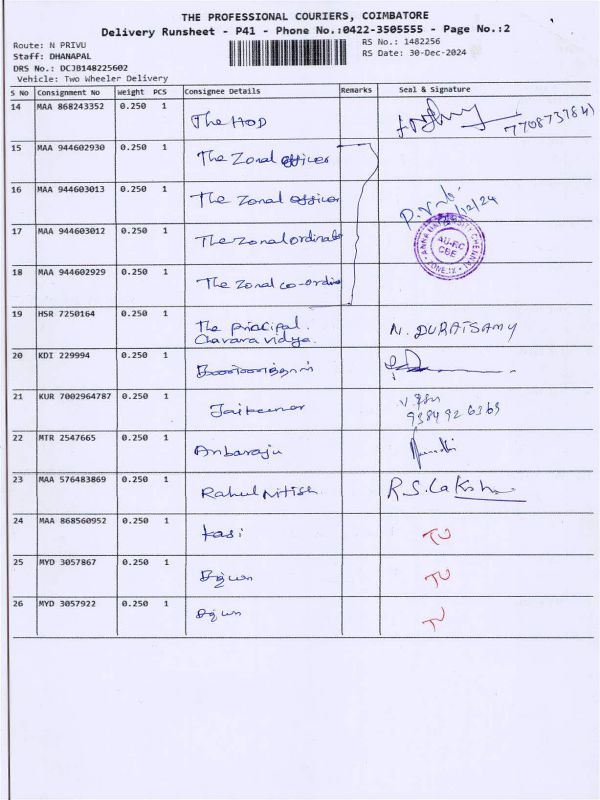 THE PROFESSIONAL COURIERS, COIMBATORE
Delivery Runsheet - P41 - Phone No.:0422-3505555 - Page No.:2
Route: N PRIVU
RS No.: 1482256
Staff: DHANAPAL
RS Date: 30-Dec-2024
DRS No.: DCJB148225602
Vehicle: Two Wheeler Delivery
S No Consignment No Weight PCS Consignee Details Remarks Seal & Signature
14 MAA 868243352 0.250 1 The HOD 7708737841
15 MAA 944602930 0.250 1 The Zonal officer
16 MAA 944603013 0.250 1 The Zonal officer /12/24
17 MAA 944603012 0.250 1 The Zonal ordinator
ANNA UNIVERSITY CHENNAI
AU-RC
CBE
ZONE-IX
18 MAA 944602929 0.250 1 The Zonal co-ordin
19 HSR 7250164 0.250 1 The principal. N. DURAISAMY
Chavara vidya.
20 KDI 229994 0.250 1
21 KUR 7002964787 0.250 1 Jaikumar 9384926369
22 MTR 2547665 0.250 1 Anbaraju
23 MAA 576483869 0.250 1 Rahul Nitish. R.S. Lakshm
24 MAA 868560952 0.250 1 Kasi TU
25 MYD 3057867 0.250 1 TU
26 MYD 3057922 0.250 1 TU